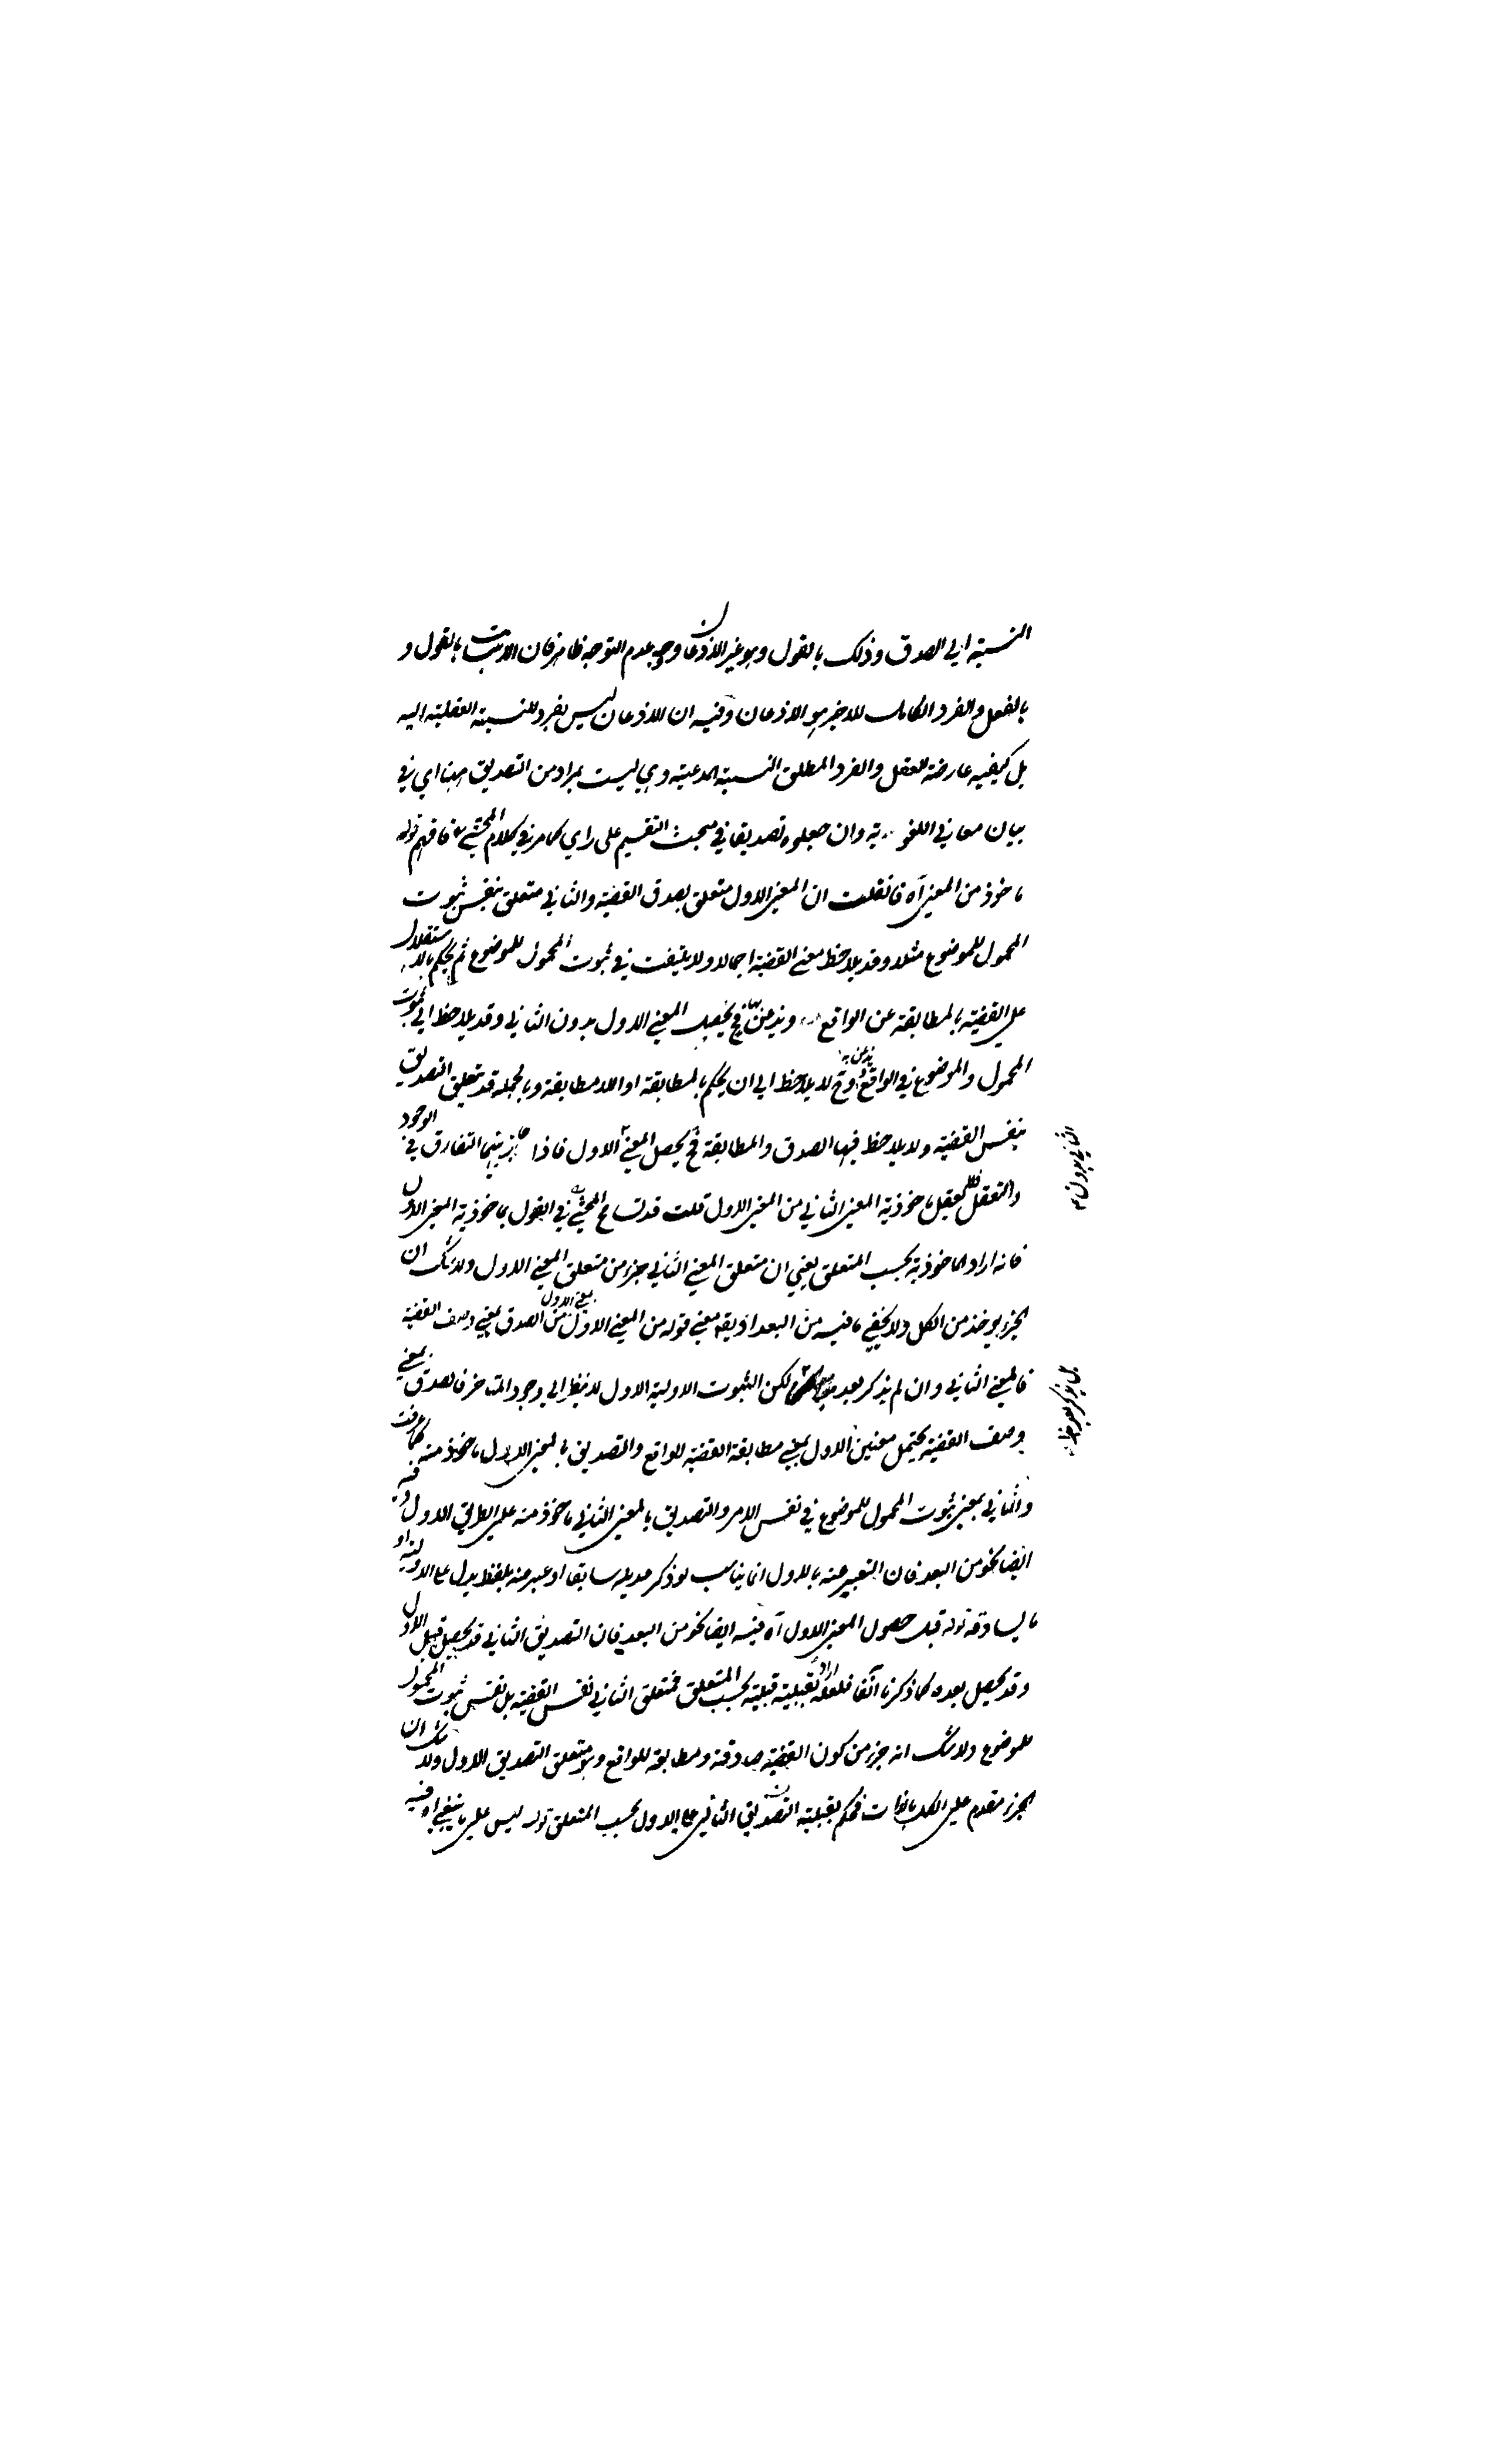 النسبة الى الصدق وذلك بالقول وهو غير الاذعان ووجه عدم التوجه ظاهر فان الانتساب بالقول و
بالفعل والفرد الكامل للاخير هو الاذعان وفيه ان الاذعان ليس بفرد للنسبة العقلية اليه
بل كيفية عارضة للعقل والفرد المطلق النسبة المدعية وهي ليست بمراد من التصديق ههنا اي في
بيان معاني اللغوية وان جعلوه تصديقا في مبحث التقسيم على راي كما مر في كلام المحشي فافهم قوله
ماخوذ من المعنى آه فانقلت ان المعنى الاول متعلق بصدق القضية والثاني متعلق بنفس ثبوت
المحمول للموضوع مثلا وقد يلاحظ معنى القضية اجمالا ولا يلتفت في ثبوت المحمول للموضوع ثم يحكم بالاستقلال
على القضية بالمطابقة عن الواقع ويذعن بها فح يحصل المعنى الاول بدون الثاني وقد يلاحظ الى ثبوت
المحمول والموضوع في الواقع ويذعن به وح لا يلاحظ الى ان يحكم بالمطابقة او اللامطابقة وبالجملة قد يتعلق التصديق
بنفس القضية ولا يلاحظ فيها الصدق والمطابقة فح يحصل المعنى الاول فاذا جاز بينهما التفارق في الوجود
الثاني بدون
والتعقل فلا يعقل ماخوذية المعنى الثاني من المعنى الاول قلت قد تسامح المحشي في القول بماخوذية المعنى الاول
فانه اراد الماخوذية بحسب المتعلق يعني ان متعلق المعنى الثاني جزء من متعلق المعنى الاول ولا شك ان
الجزء يوخذ من الكل ولا يخفى ما فيه من البعد او يقه معنى قوله من المعنى الاول من الصدق بمعنى وصف القضية
بمعنى الاول
فالمعنى الثاني وان لم يذكر بعد لكن الثبوت الاولية الاول لا ينظر الى وجود المتاخر فالصدق بمعنى
بل يذكر بعد
وصف القضية يحتمل معنيين الاول بمعنى مطابقة القضية للواقع والتصديق بالمعنى الاول ماخوذ منه كما عرفت
والثاني بمعنى ثبوت المحمول للموضوع في نفس الامر والتصديق بالمعنى الثاني ماخوذ منه على الطرق الاول وفيه
ايضا نحو من البعد فان التعبير عنه بالاول انما يناسب لو ذكر عديله سابقا او عبر عنه بلفظ يدل على الاولية او
ما يساوقه قوله قبل حصول المعنى الاول آه فيه ايضا نحو من البعد فان التصديق الثاني قد يحصل قبل الاول
وقد يحصل بعده كما ذكرنا آنفا فلعله اراد بقبلية قبلية بحسب المتعلق فمتعلق الثاني نفس القضية بل نفس ثبوت المحمول
للموضوع ولا شك انه جزء من كون القضية صادقة ومطابقة للواقع وهو متعلق التصديق الاول ولا شك ان
الجزء مقدم على الكل بالذات فحكم بقبلية التصديق الثاني على الاول بحسب المتعلق قوله ليس على ما ينبغي اه فيه